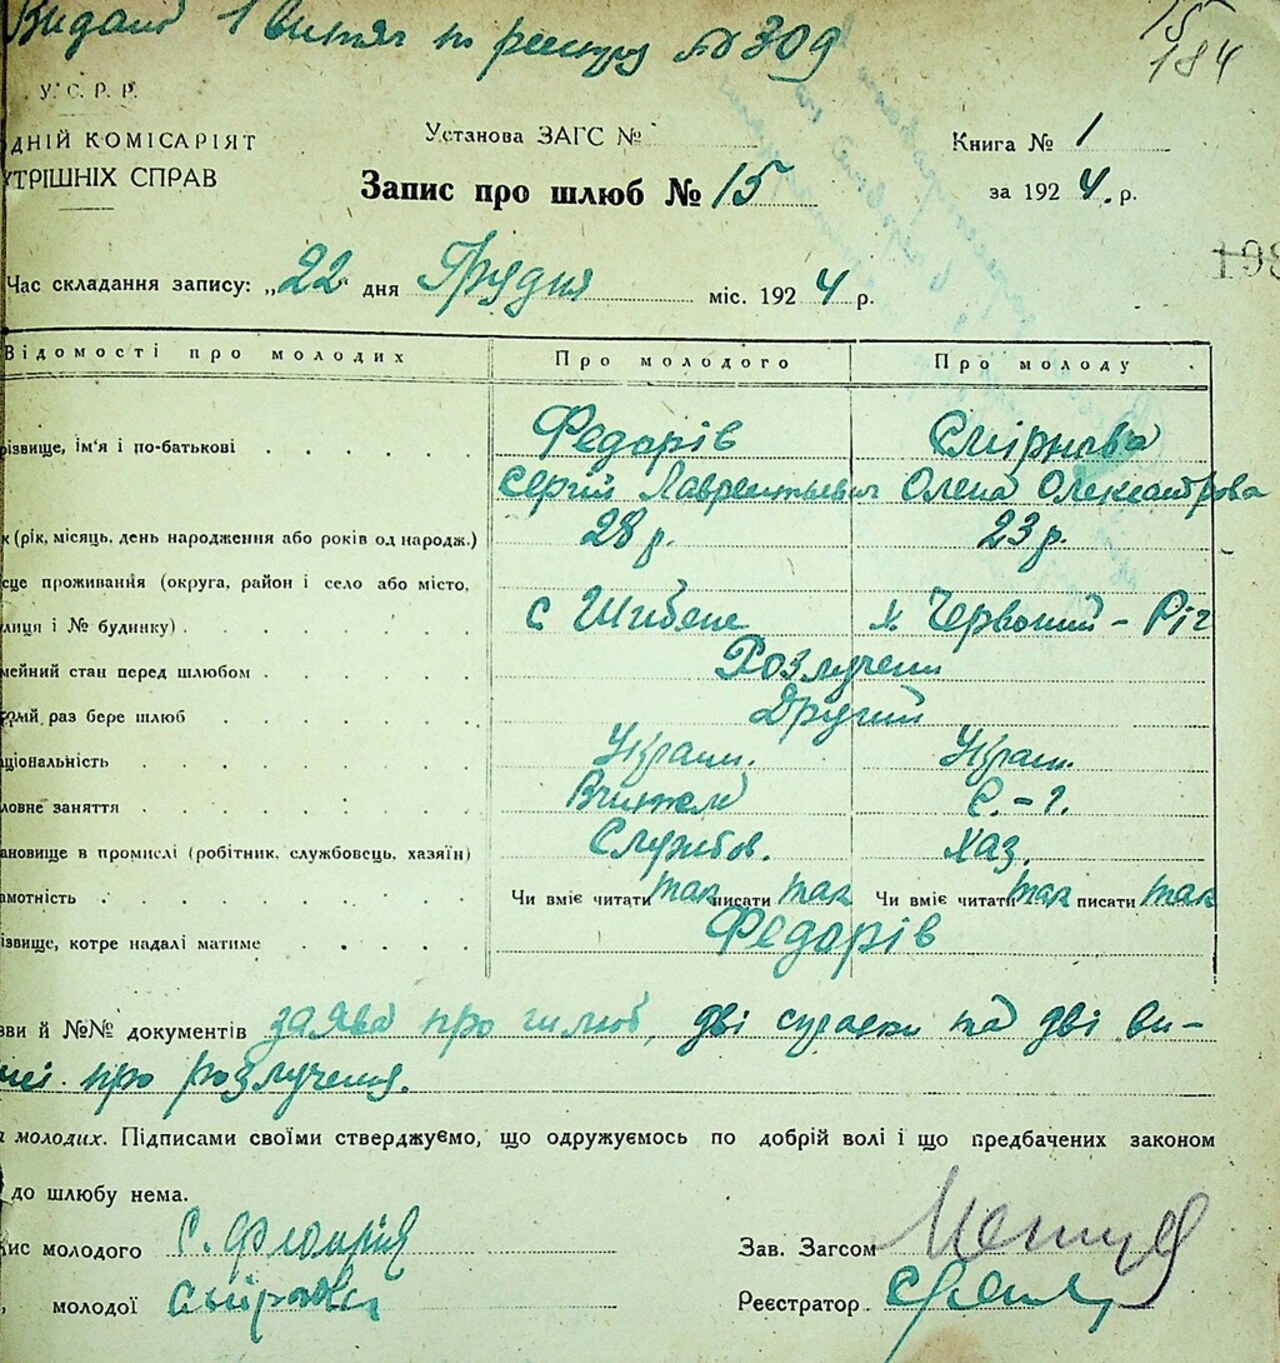 Видано 1 витяг по реєстру № 309
15
184
У. С. Р. Р.
ДНІЙ КОМІСАРІЯТ
УТРІШНІХ СПРАВ
Установа ЗАГС №
Книга № 1
Запис про шлюб № 15
за 1924. р.
198
Час складання запису: „22" дня Грудня міс. 1924 р.
Відомості про молодих Про молодого Про молоду
різвище, ім'я і по-батькові Федорів Смірнова
Сергій Лаврентьевич Олена Олександрова
к (рік, місяць, день народження або років од народж.) 28 р. 23 р.
сце проживання (округа, район і село або місто,
лиця і № будинку) с Шибене х. Червоний - Ріг
мейний стан перед шлюбом Розлучені
рий раз бере шлюб Другий
ціональність Україн. Україн.
ловне заняття Вчитель С. - г.
ановище в промислі (робітник, службовець, хазяїн) Службов. Хаз.
амотність Чи вміє читати так писати так Чи вміє читати так писати так
ізвище, котре надалі матиме Федорів
зви й №№ документів заява про шлюб, дві справки та дві ви-
про розлучення.
а молодих. Підписами своїми стверджуємо, що одружуємось по добрій волі і що предбачених законом
до шлюбу нема.
ис молодого С. Федорів Зав. Загсом
молодої Смірнова Реєстратор